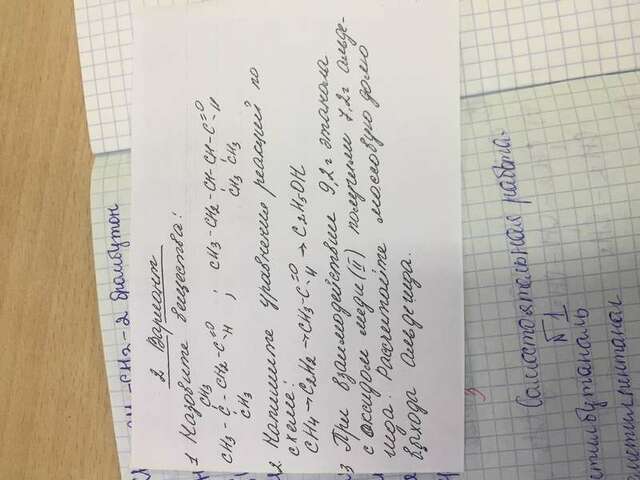 -CH2-2 бромбутон
2 Вариант
1 Назовите вещества:
CH3 - C - CH2 - C =O -H ; CH3 - CH2 - CH - CH - C =O -H
CH3
CH3
CH3 CH3
2. Напишите уравнения реакций по
схеме:
CH4 → C2H2 → CH3 - C =O -H → C2H5OH
3 При взаимодействии 9,2г этанола
с оксидом меди (II) получили 7,2г альде-
гида. Рассчитайте массовую долю
выхода альдегида.
Самостоятельная работа.
№1